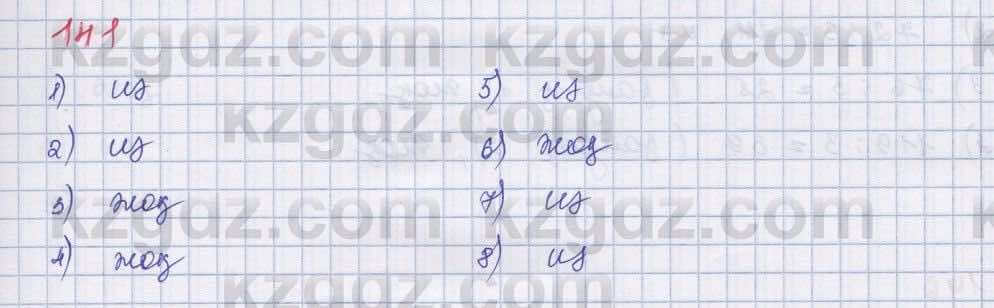 141
kzgdz.com kzgdz.com
1) иә 5) иә
kzgdz.com
2) иә 6) жоқ
3) жоқ 7) иә
kzgdz.com kzgdz.com
4) жоқ 8) иә